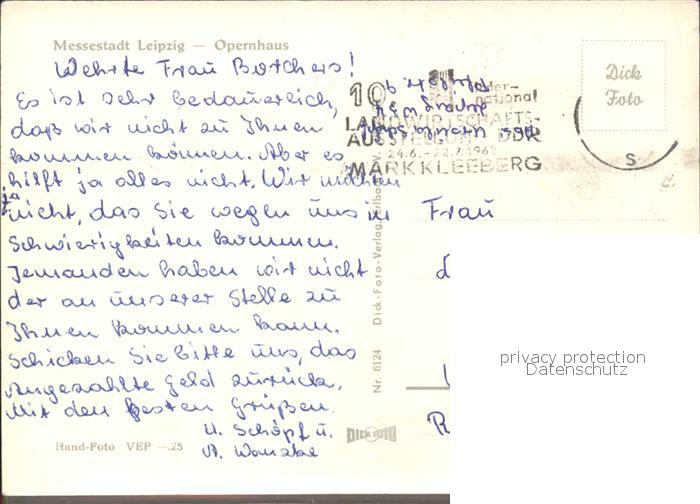 Messestadt Leipzig — Opernhaus
Wehrte Frau Borchers!
Es ist sehr bedauerlich,
daß wir nicht zu Ihnen
kommen können. Aber es
hilft ja alles nicht. Wir möchten
ja
nicht, das Sie wegen uns in
Schwierigkeiten kommen.
Jemanden haben wir nicht
der an unserer Stelle zu
Ihnen kommen kann.
Schicken Sie bitte uns, das
Angezahlte Geld zurück.
Mit den besten Grüßen.
U. Schöpf u.
A. Wanzke
Hand-Foto VEP —.25
10
Inter-
national
LANDWIRTSCHAFTS-
AUSSTELLUNG DDR
24.6.-22.7.1962
MARKKLEEBERG
Dick
Foto
S
Nr. 6124 Dick-Foto-Verlag, Erlbach
DICK FOTO
Frau
privacy protection
Datenschutz